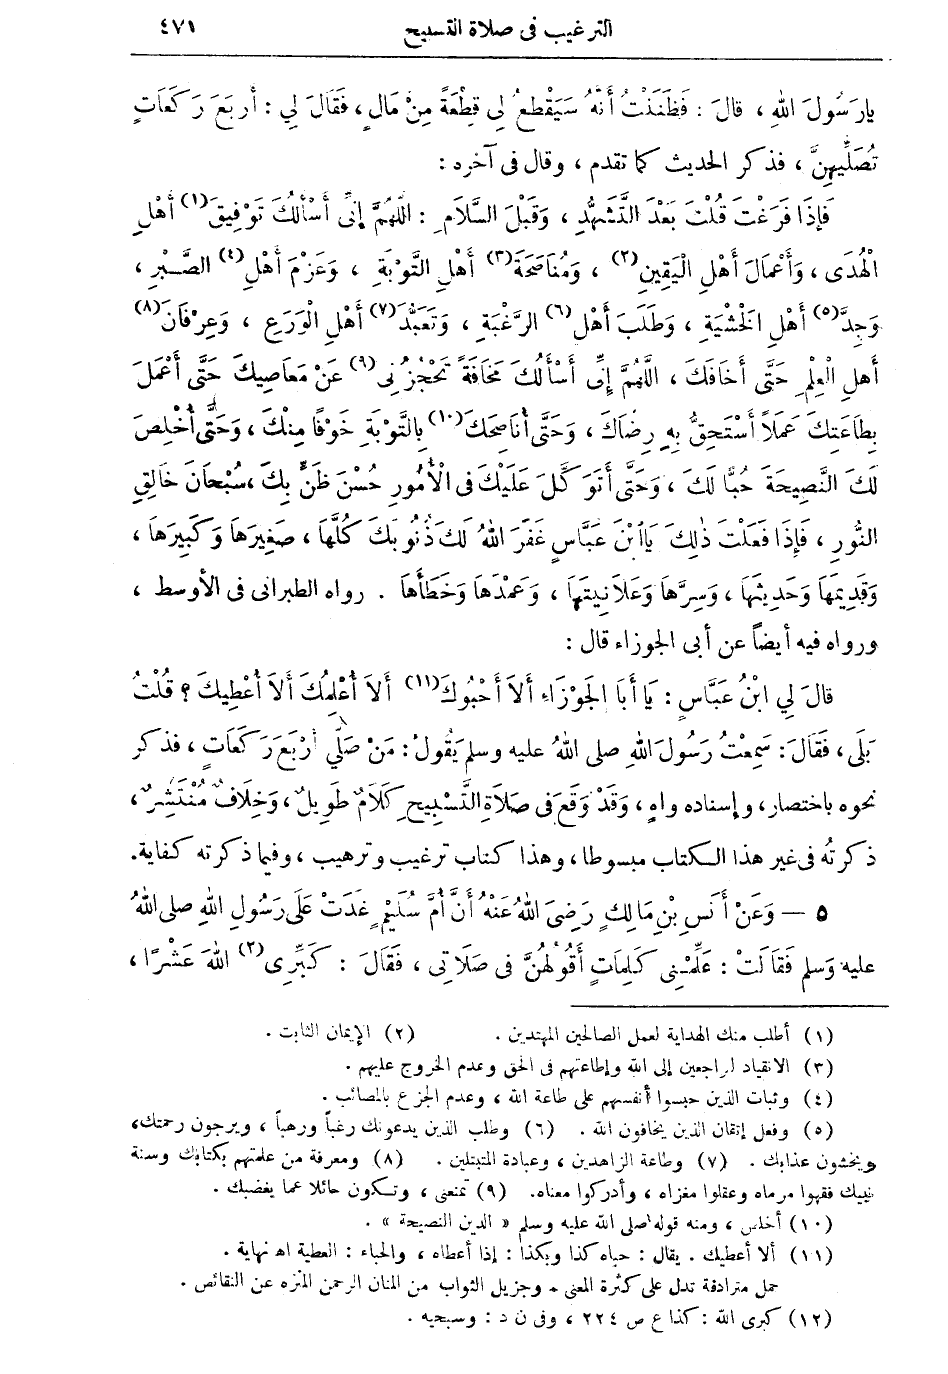 الترغيب فى صلاة التسبيح ٤٧١
يَارَسُولَ اللهِ ، قالَ : فَظَنَنْتُ أَنَّهُ سَيَقْطَعُ لِي قِطْعَةً مِنْ مَالٍ ، فَقَالَ لِي : أَرْبَعَ رَكَعَاتٍ
تُصَلِّيهِنَّ ، فذكر الحديث كما تقدم ، وقال فى آخره :
فَإِذَا فَرَغْتَ قُلْتَ بَعْدَ التَّشَهُّدِ ، وَقَبْلَ السَّلاَمِ : اللّهُمَّ إِنِّى أَسْأَلُكَ تَوْفِيقَ (١) أَهْلِ
الْهُدَى ، وَأَعْمَالَ أَهْلِ الْيَقِينِ (٢) ، وَمُنَاصَحَةَ (٣) أَهْلِ التَّوْبَةِ ، وَعَزْمَ أَهْلِ (٤) الصَّبْرِ ،
وَجِدَّ (٥) أَهْلِ الْخَشْيَةِ ، وَطَلَبَ أَهْلِ (٦) الرَّغْبَةِ ، وَتَعَبُّدَ (٧) أَهْلِ الْوَرَعِ ، وَعِرْفَانَ (٨)
أَهلِ الْعِلْمِ حَتَّى أَخَافَكَ ، اللّهُمَّ إِنِّى أَسْأَلُكَ مَخَافَةً تَحْجُزُنِى (٩) عَنْ مَعَاصِيكَ حَتَّى أَعْمَلَ
بِطَاعَتِكَ عَمَلاً أَسْتَحِقُّ بِهِ رِضَاكَ ، وَحَتَّى أُنَاصِحَكَ (١٠) بِالتَّوْبَةِ خَوْفًا مِنْكَ ، وَحَتَّى أُخْلِصَ
لَكَ النَّصِيحَةَ حُبًّا لَكَ ، وَحَتَّى أَتَوَكَّلَ عَلَيْكَ فى الْأُمُورِ حُسْنَ ظَنٍّ بِكَ ، سُبْحَانَ خَالِقِ
النُّورِ ، فَإِذَا فَعَلْتَ ذٰلِكَ يَاابْنَ عَبَّاسٍ غَفَرَ اللهُ لَكَ ذُنُوبَكَ كُلَّهَا ، صَغِيرَهَا وَكَبِيرَهَا ،
وَقَدِيمَهَا وَحَدِيثَهَا ، وَسِرَّهَا وَعَلاَنِيَتَهَا ، وَعَمْدَهَا وَخَطَأَهَا . رواه الطبرانى فى الأوسط ،
ورواه فيه أيضاً عن أبى الجوزاء قال :
قالَ لِي ابْنُ عَبَّاسٍ : يَا أَبَا الْجَوْزَاءِ أَلاَ أَحْبُوكَ (١١) أَلاَ أُعَلِّمُكَ أَلاَ أُعْطِيكَ ؟ قُلْتُ
بَلَى ، فَقَالَ : سَمِعْتُ رَسُولَ اللهِ صلى اللهُ عليه وسلم يَقُولُ : مَنْ صَلَّى أَرْبَعَ رَكَعَاتٍ ، فذكر
نحوه باختصار ، وإسناده واهٍ ، وَقَدْ وَقَعَ فى صَلاَةِ التَّسْبِيحِ كَلاَمٌ طَوِيلٌ ، وَخِلاَفٌ مُنْتَشِرٌ ،
ذكرتُه فى غير هذا الكتاب مبسوطا ، وهذا كتاب ترغيب وترهيب ، وفيما ذكرته كفاية.
٥ — وَعَنْ أَنَسِ بْنِ مَالِكٍ رَضِيَ اللهُ عَنْهُ أَنَّ أُمَّ سُلَيْمٍ غَدَتْ عَلَى رَسُولِ اللهِ صلى اللهُ
عليه وَسلم فَقَالَتْ : عَلِّمْنِى كَلِمَاتٍ أَقُولُهُنَّ فى صَلاَتِى ، فَقَالَ : كَبِّرِى (٢) اللهَ عَشْرًا ،
(١) أطلب منك الهداية لعمل الصالحين المهتدين . (٢) الإيمان الثابت .
(٣) الانقياد لراجعين إلى الله وإطاعتهم فى الحق وعدم الخروج عليهم .
(٤) وثبات الذين حبسوا أنفسهم على طاعة الله ، وعدم الجزع بالمصائب .
(٥) وفعل إتقان الذين يخافون الله . (٦) وطلب الذين يدعونك رغباً ورهباً ، ويرجون رحمتك،
ويخشون عذابك . (٧) وطاعة الزاهدين ، وعبادة المتبتلين . (٨) ومعرفة من علمتهم بكتابك وسنة
نبيك فقهوا مرماه وعقلوا مغزاه ، وأدركوا معناه. (٩) تمنعنى ، وتكون حائلا عما يغضبك .
(١٠) أخلص ، ومنه قوله صلى الله عليه وسلم « الدين النصيحة » .
(١١) ألا أعطيك . يقال : حباه كذا وبكذا : إذا أعطاه ، والحباء : العطية اه نهاية .
جمل مترادفة تدل على كثرة المعنى - وجزيل الثواب من المنان الرحمن المنزه عن النقائص .
(١٢) كبرى الله : كذا ع ص ٢٢٤ ، وفى ن د : وسبحيه .